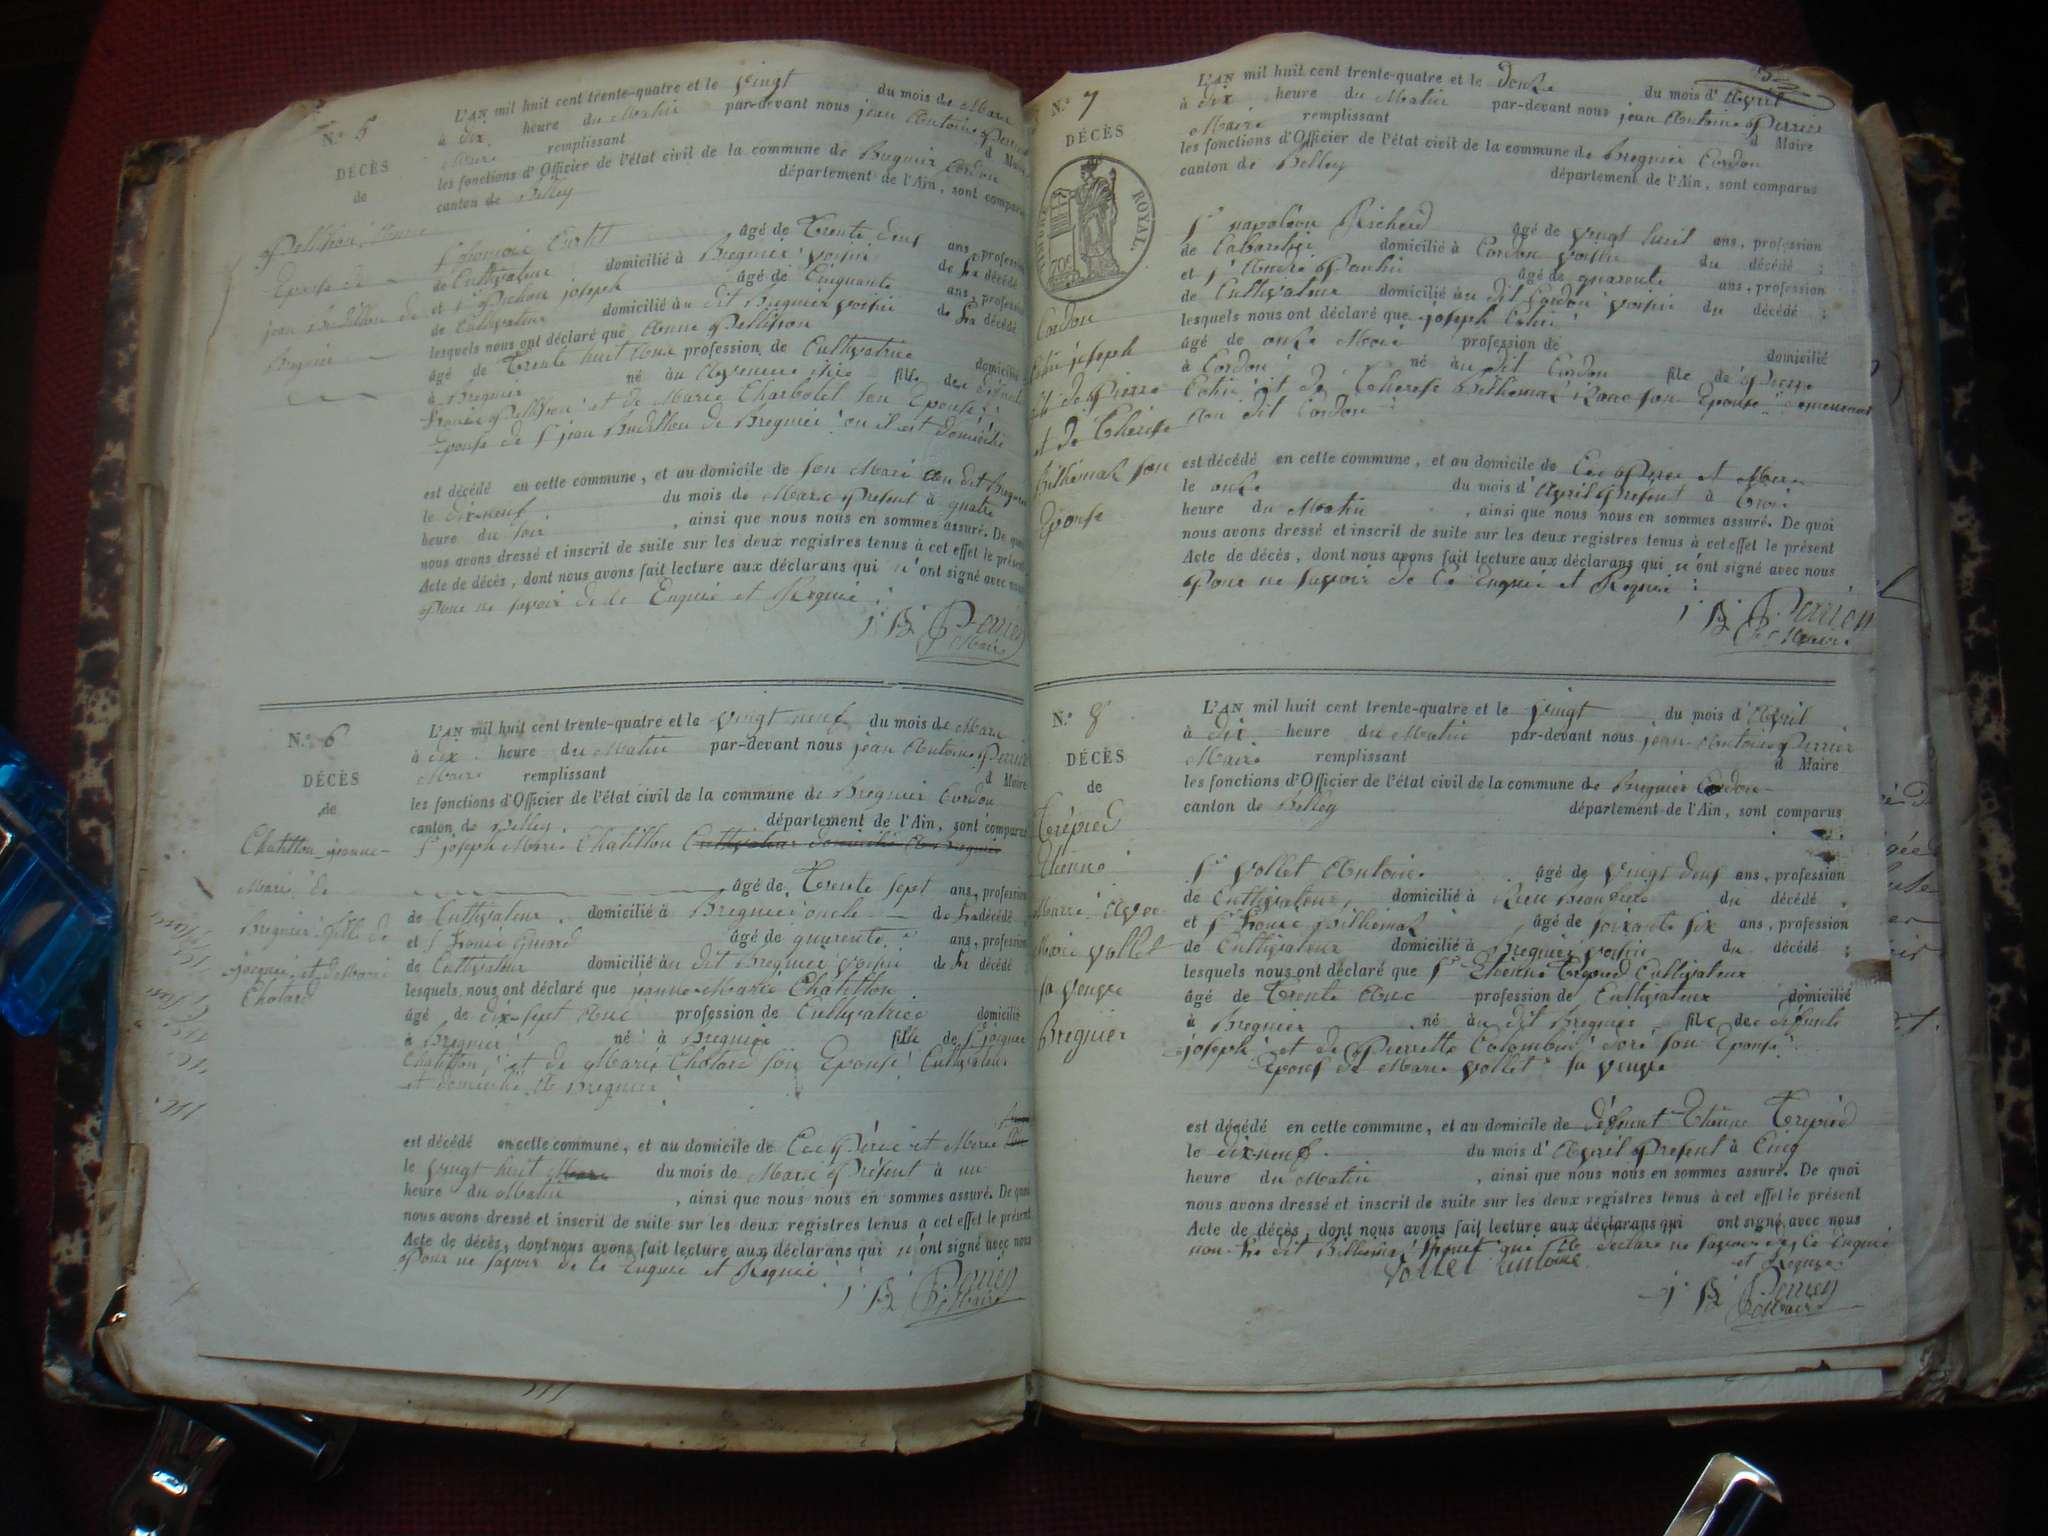 N.° 5
DÉCÈS
de
Pellisson Anne
Epouse de
jean Budillon de
Bregnier
L'AN mil huit cent trente-quatre et le vingt du mois de Mars
à dix heure du Matin par-devant nous jean Antoine Perrier
Maire remplissant d Maire
les fonctions d'Officier de l'état civil de la commune de Bregnier Cordon
canton de Belley département de l'Ain, sont comparus
âgé de Trente deux ans, profession
de Cultivateur domicilié à Bregnier voisin de la décédé
et Sr Pichon joseph âgé de Cinquante ans, profession
de Cultivateur domicilié au dit Bregnier voisin de la décédé
lesquels nous ont déclaré que Anne Pellisson
âgé de Trente huit Ans profession de Cultivatrice domicilié
à Bregnier né au fille des défunts
Pellisson et de Marie Charbotel son Epouse
Epouse de Sr jean Budillon de Bregnier ou il est domicilié
est décédé en cette commune, et au domicile de son Mari au dit Bregnier
le dix-neuf du mois de Mars Présent à quatre
heure du soir, ainsi que nous nous en sommes assuré. De quoi
nous avons dressé et inscrit de suite sur les deux registres tenus à cet effet le présent
Acte de décès, dont nous avons fait lecture aux déclarans qui n'ont signé avec nous
Pour ne savoir de ce Enquis et Requis
Perrier
Maire
N.° 6
DÉCÈS
de
Chatillon jeanne
Marie de
Bregnier fille de
jacques et de Marie
Chotard
L'AN mil huit cent trente-quatre et le vingt neuf du mois de Mars
à dix heure du Matin par-devant nous jean Antoine Perrier
Maire remplissant d Maire
les fonctions d'Officier de l'état civil de la commune de Bregnier Cordon
canton de Belley département de l'Ain, sont comparus
Sr joseph Marie Chatillon Cultivateur domicilié à Bregnier
âgé de Trente sept ans, profession
de Cultivateur domicilié à Bregnier oncle de la décédé
et Sr âgé de quarente ans, profession
de Cultivateur domicilié au dit Bregnier voisin de la décédé
lesquels nous ont déclaré que jeanne Marie Chatillon
âgé de dix-sept Ans profession de Cultivatrice domicilié
à Bregnier né à Bregnier fille de Sr jacques
Chatillon et de Marie Chotard son Epouse Cultivateur
et domicilié à Bregnier
est décédé en cette commune, et au domicile de Ces Père et Mere
le vingt huit Mars du mois de Mars Présent à un
heure du Matin, ainsi que nous nous en sommes assuré. De quoi
nous avons dressé et inscrit de suite sur les deux registres tenus à cet effet le présent
Acte de décès, dont nous avons fait lecture aux déclarans qui n'ont signé avec nous
Pour ne savoir de ce Enquis et Requis
Perrier
Maire
N.° 7
DÉCÈS
TIMBRE ROYAL.
70c
Cordon
joseph
fils de Pierre
et de Thérèse
Bithémat son
Epouse
L'AN mil huit cent trente-quatre et le douze du mois d'Avril
à dix heure du Matin par-devant nous jean Antoine Perrier
Maire remplissant d Maire
les fonctions d'Officier de l'état civil de la commune de Bregnier Cordon
canton de Belley département de l'Ain, sont comparus
Sr napoléon Richerd âgé de vingt huit ans, profession
de Cabaretier domicilié à Cordon voisin du décédé ;
et Sr André âgé de quarente ans, profession
de Cultivateur domicilié au dit Cordon voisin du décédé ;
lesquels nous ont déclaré que joseph
âgé de onze Mois profession de domicilié
à Cordon né au dit Cordon fils de Pierre
et de Therese Bithemat son Epouse demeurant
au dit Cordon
est décédé en cette commune, et au domicile de Ces Pere et Mere
le onze du mois d'Avril Présent à trois
heure du Matin, ainsi que nous nous en sommes assuré. De quoi
nous avons dressé et inscrit de suite sur les deux registres tenus à cet effet le présent
Acte de décès, dont nous avons fait lecture aux déclarans qui n'ont signé avec nous
Pour ne savoir de ce Enquis et Requis
Perrier
Maire
N.° 8
DÉCÈS
de
Trépied
Etienne
Marié Avec
Marie vollet
sa veuve
Bregnier
L'AN mil huit cent trente-quatre et le vingt du mois d'Avril
à dix heure du Matin par-devant nous jean Antoine Perrier
Maire remplissant d Maire
les fonctions d'Officier de l'état civil de la commune de Bregnier Cordon
canton de Belley département de l'Ain, sont comparus
Sr vollet Antoine âgé de vingt deux ans, profession
de Cultivateur, domicilié à du décédé,
et Sr Bithemat âgé de soixante six ans, profession
de Cultivateur domicilié à Bregnier voisin du décédé ;
lesquels nous ont déclaré que Sr Etienne Trepied Cultivateur
âgé de Trente Ans profession de Cultivateur domicilié
à Bregnier né au dit Bregnier fils de défunt
joseph et de Pierrette son Epouse
Epoux de Marie vollet sa veuve
est décédé en cette commune, et au domicile de défunt Etienne Trepied
le dix-neuf du mois d'Avril Présent à Cinq
heure du Matin, ainsi que nous nous en sommes assuré. De quoi
nous avons dressé et inscrit de suite sur les deux registres tenus à cet effet le présent
Acte de décès, dont nous avons fait lecture aux déclarans qui ont signé avec nous
non le dit Bithemat qui à déclaré ne savoir de ce Enquis
et Requis
Vollet Antoine
Perrier
Maire